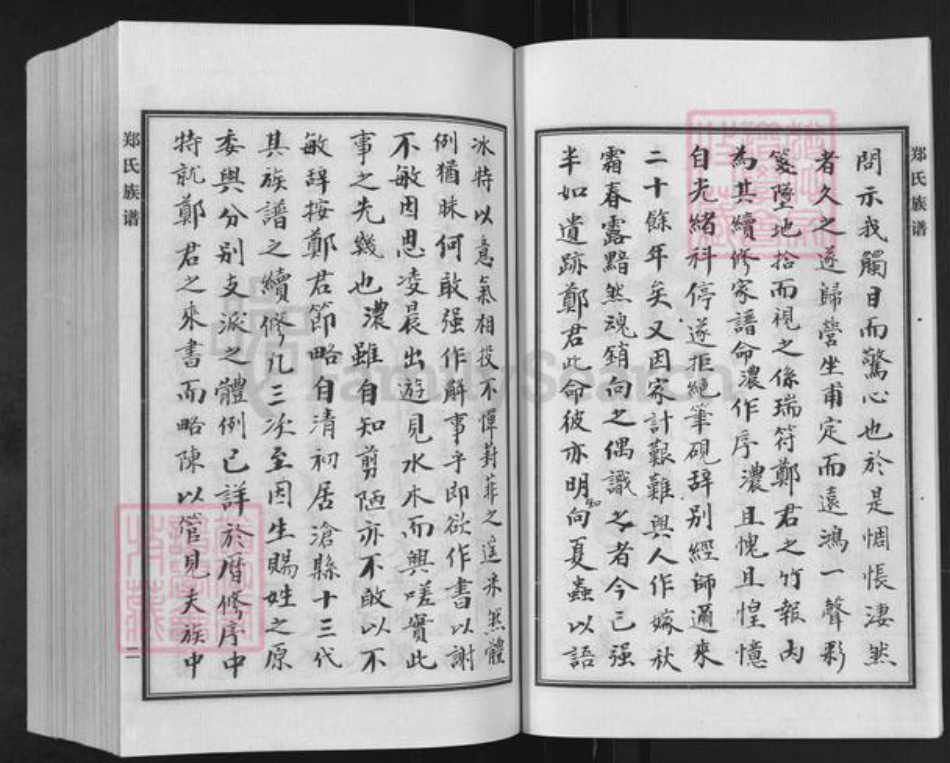 郑氏族谱
問示我觸目而驚心也於是惆悵淒然
者久之遂歸營坐甫定而遠鴻一聲彩
箋墜地拾而視之係瑞符鄭君之竹報内
為其續修家譜命濃作序濃且愧且惶憶
自光緒科停遂拒絕筆硯辞别經師邇來
二十餘年矣又因家計艱難與人作嫁秋
霜春露黯然魂銷向之偶識之者今已强
半如遺跡鄭君此命彼亦明知向夏蟲以語
冰特以意氣相投不憚葑菲之採然體
例猶昧何敢强作解事乎即欲作書以謝
不敏因思凌晨出遊見水木而興嗟實此
事之先幾也濃雖自知剪陋亦不敢以不
敏辞按鄭君節略自清初居滄縣十三代
其族譜之續修几三次至因生賜姓之原
委與分别支派之體例已詳於曆修序中
特就鄭君之來書而略陳以管見夫族中
郑氏族谱
二
FamilySearch